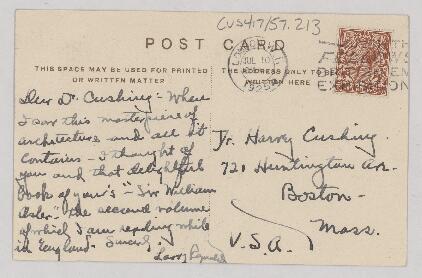 CUS417/57.213
POST CARD
THIS SPACE MAY BE USED FOR PRINTED
OR WRITTEN MATTER
THE ADDRESS ONLY TO BE
WRITTEN HERE
LONDON
JUL 10
1925
Dear Dr. Cushing - When
I saw this masterpiece of
architecture and all it
contains - I thought of
you and that delightful
book of your's - "Sir William
Osler". The second volume
of which I am reading while
in England. Sincerely,
Larry
Dr. Harvey Cushing
721 Huntington Av.
Boston -
Mass.
U.S.A.